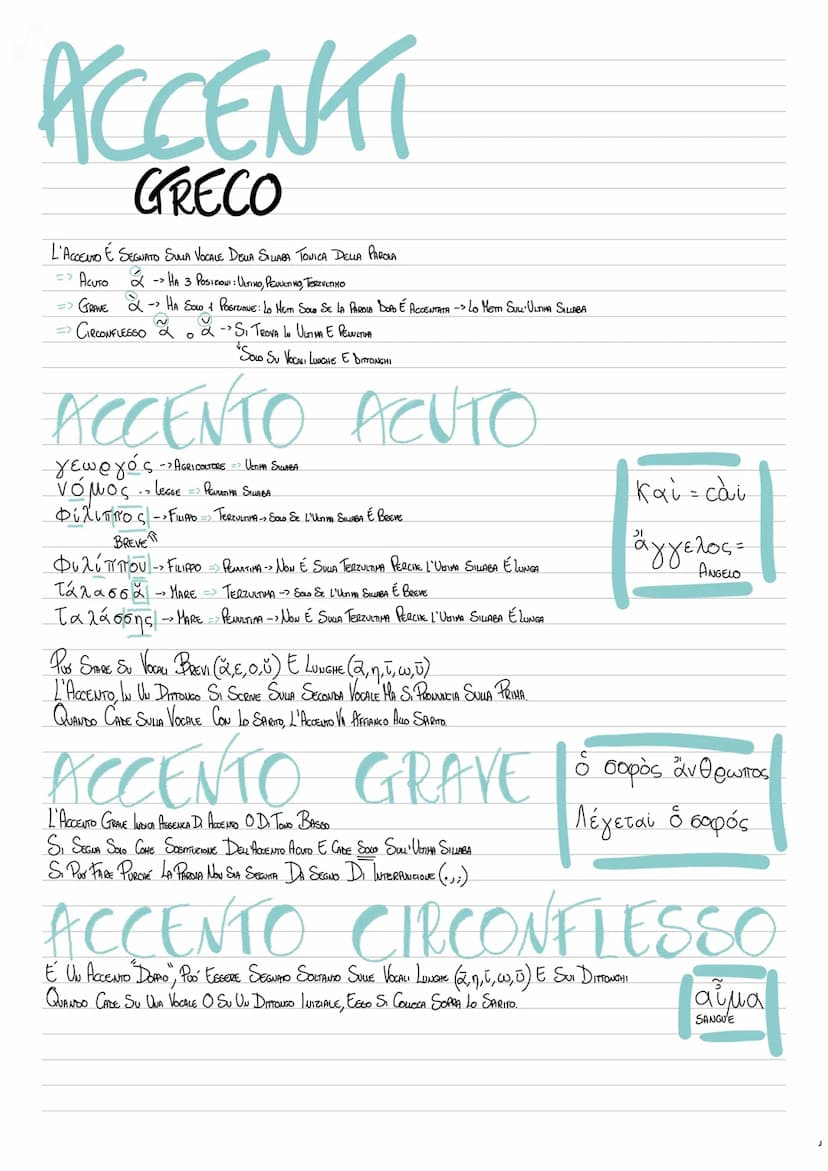 ACCENTI
GRECO
L'ACCENTO É SEGNATO SULLA VOCALE DELLA SILLABA TONICA DELLA PAROLA
=> ACUTO ά -> HA 3 POSIZIONI: ULTIMO, PENULTIMO, TERZULTIMO
=> GRAVE ὰ -> HA SOLO 1 POSIZIONE: LO METTI SOLO SE LA PAROLA DOPO É ACCENTATA -> LO METTI SULL'ULTIMA SILLABA
=> CIRCONFLESSO α̃ O ᾰ -> SI TROVA IN ULTIMA E PENULTIMA
SOLO SU VOCALI LUNGHE E DITTONGHI
ACCENTO ACUTO
γεωργός -> AGRICOLTORE => ULTIMA SILLABA
νόμος -> LEGGE => PENULTIMA SILLABA
Φίλιππος -> FILIPPO => TERZULTIMA -> SOLO SE L'ULTIMA SILLABA É BREVE
BREVE
Φιλίππου -> FILIPPO => PENULTIMA -> NON É SULLA TERZULTIMA PERCHE L'ULTIMA SILLABA É LUNGA
Τάλασσᾰ -> MARE => TERZULTIMA -> SOLO SE L'ULTIMA SILLABA É BREVE
Ταλάσσης -> MARE => PENULTIMA -> NON É SULLA TERZULTIMA PERCHE L'ULTIMA SILLABA É LUNGA
Καὶ = CÀI
ἄγγελος =
ANGELO
PUÒ STARE SU VOCALI BREVI (ᾰ, ε, ο, ῠ) E LUNGHE (ᾱ, η, ῑ, ω, ῡ)
L'ACCENTO, IN UN DITTONGO SI SCRIVE SULLA SECONDA VOCALE MA SI PRONUNCIA SULLA PRIMA.
QUANDO CADE SULLA VOCALE CON LO SPIRITO, L'ACCENTO VA AFFIANCO ALLO SPIRITO.
ACCENTO GRAVE
L'ACCENTO GRAVE INDICA ASSENZA DI ACCENTO O DI TONO BASSO
SI SEGNA SOLO COME SOSTITUZIONE DELL'ACCENTO ACUTO E CADE SOLO SULL'ULTIMA SILLABA
SI PUÒ FARE PURCHÉ LA PAROLA NON SIA SEGUITA DA SEGNO DI INTERPUNZIONE (.,;)
ὅ σοφὸς ἄνθρωπος
Λέγεται ὅ σοφός
ACCENTO CIRCONFLESSO
É UN ACCENTO "DOPPIO", PUÓ ESSERE SEGNATO SOLTANTO SULLE VOCALI LUNGHE (ᾱ, η, ῑ, ω, ῡ) E SUI DITTONGHI
QUANDO CADE SU UNA VOCALE O SU UN DITTONGO INIZIALE, ESSO SI COLLOCA SOPRA LO SPIRITO.
αἷμα
SANGUE